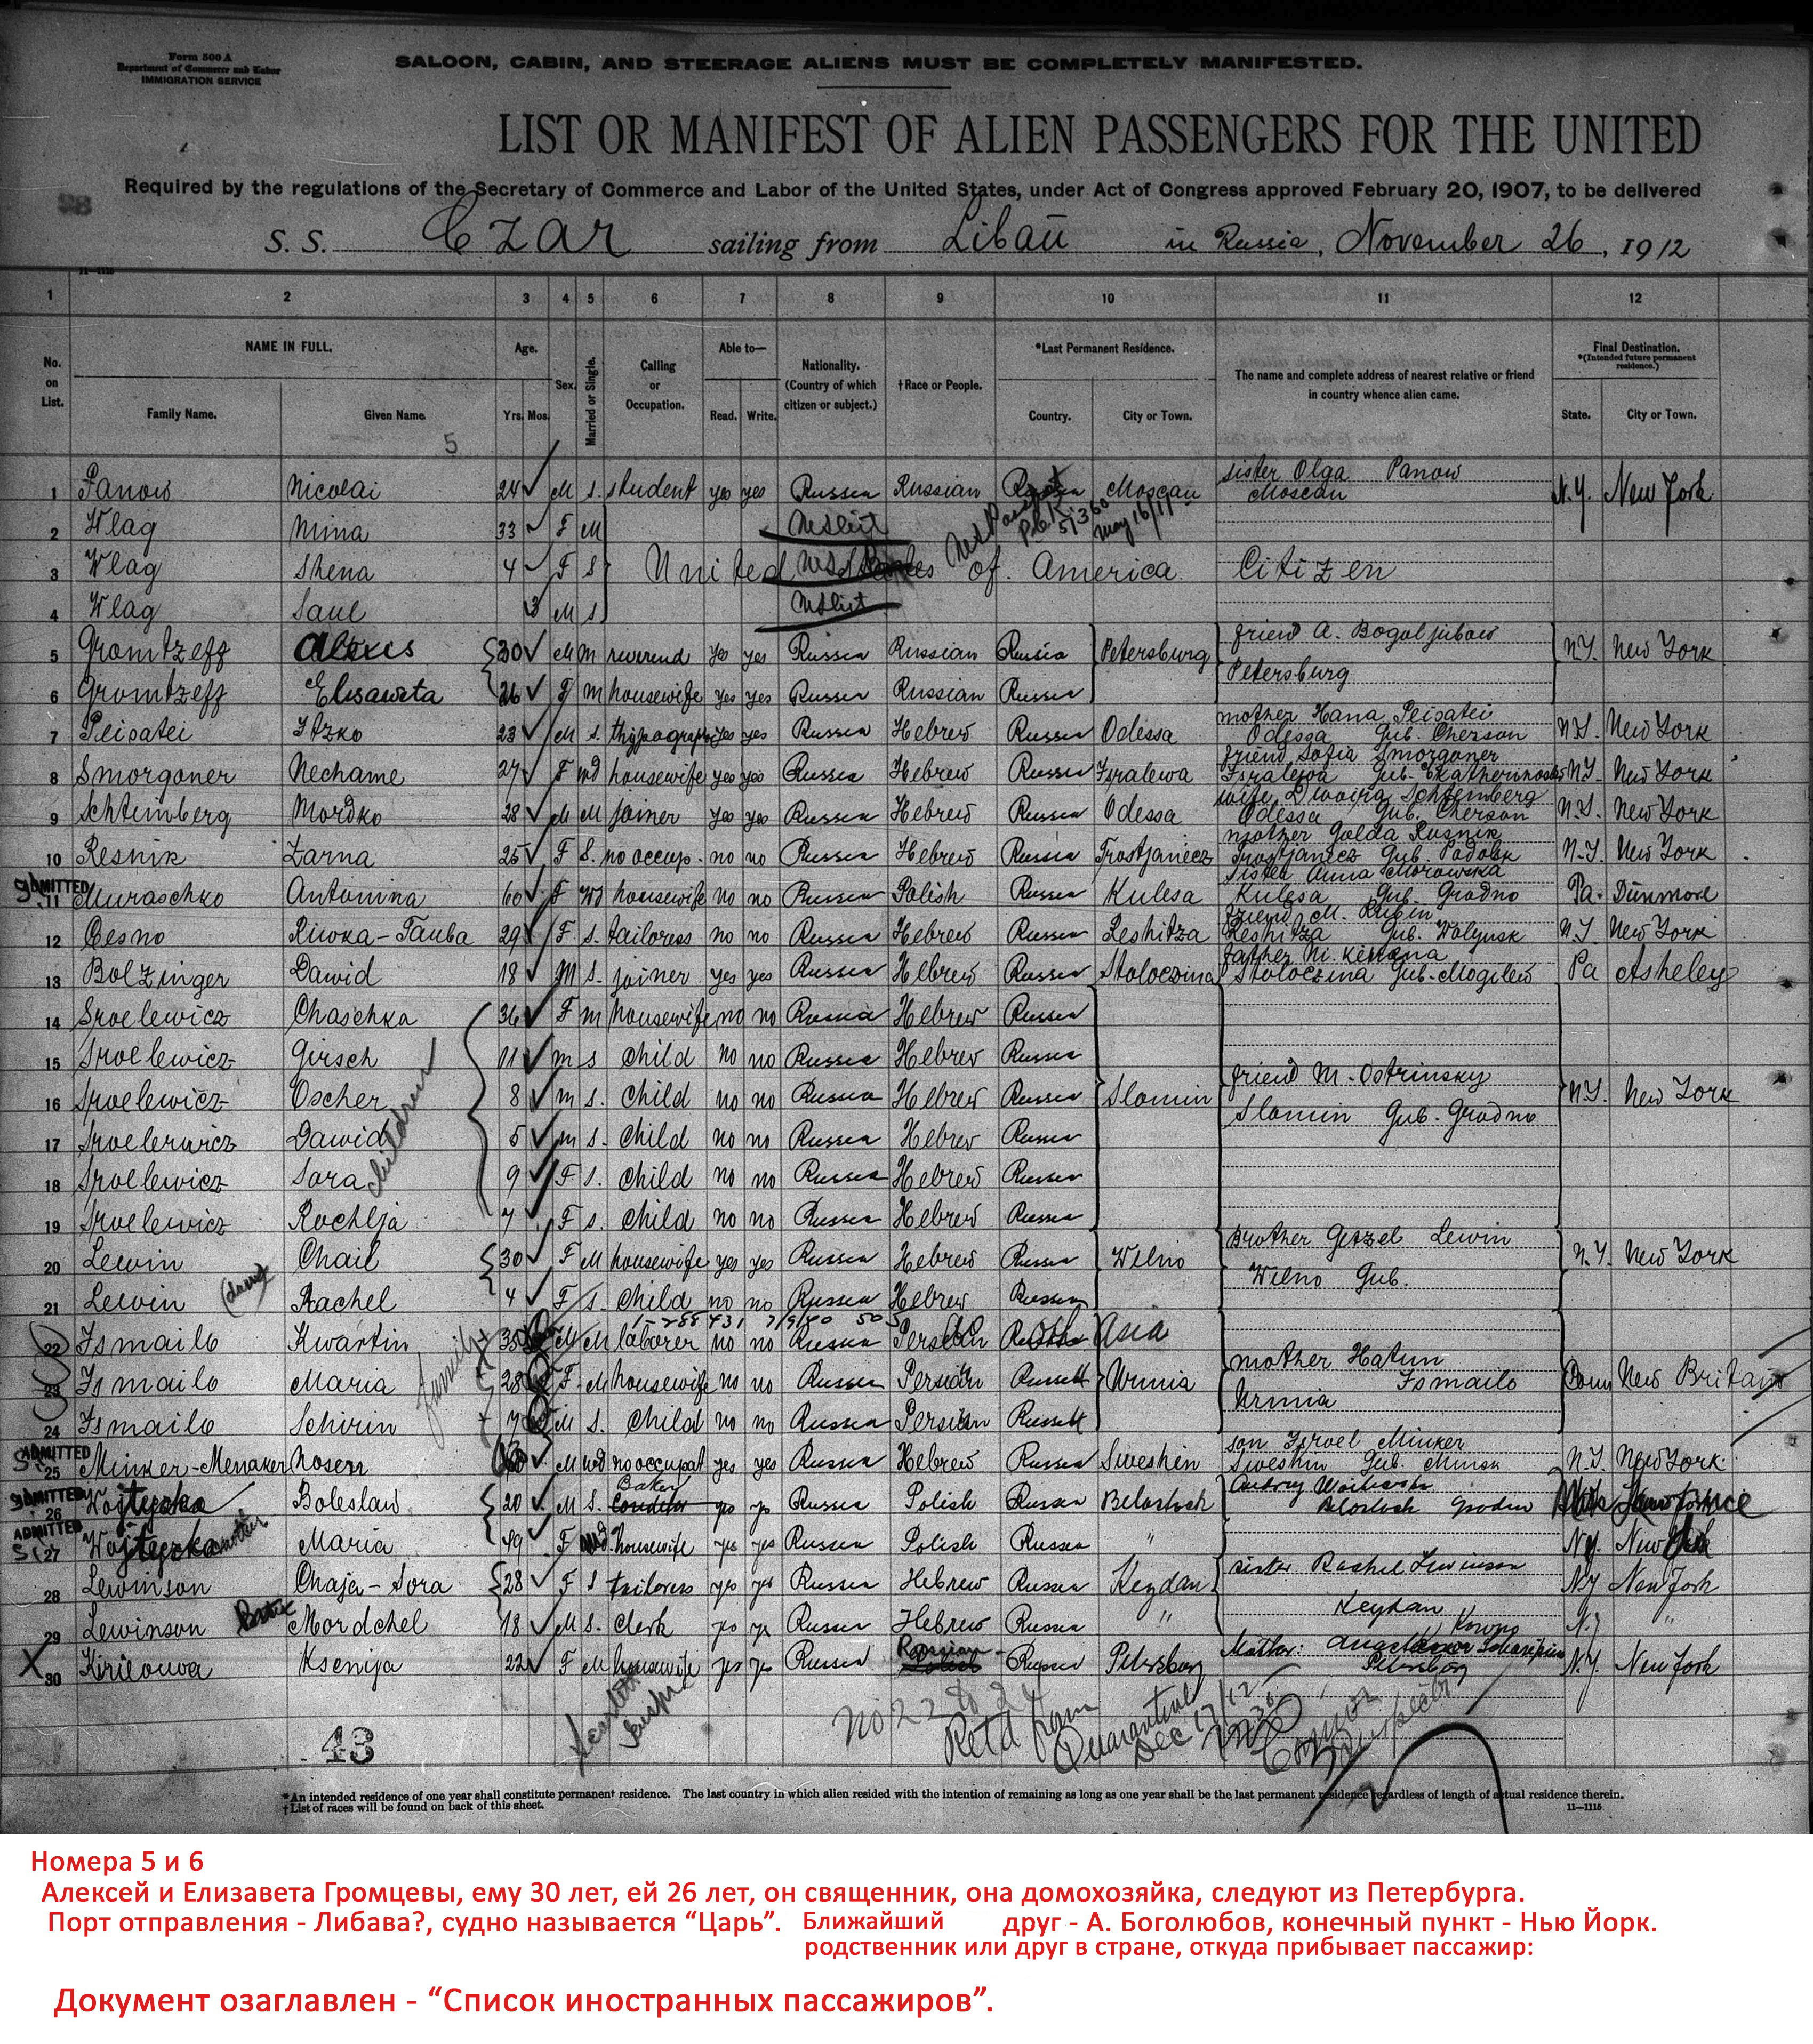 Form 500 A
Department of Commerce and Labor
IMMIGRATION SERVICE
SALOON, CABIN, AND STEERAGE ALIENS MUST BE COMPLETELY MANIFESTED.
LIST OR MANIFEST OF ALIEN PASSENGERS FOR THE UNITED
Required by the regulations of the Secretary of Commerce and Labor of the United States, under Act of Congress approved February 20, 1907, to be delivered
S. S. Czar sailing from Libau in Russia, November 26, 1912
1 2 3 4 5 6 7 8 9 10 11 12
No. on List. NAME IN FULL. Family Name. Given Name. Age. Yrs. Mos. Sex. Married or Single. Calling or Occupation. Able to— Read. Write. Nationality. (Country of which citizen or subject.) †Race or People. *Last Permanent Residence. Country. City or Town. The name and complete address of nearest relative or friend in country whence alien came. Final Destination. *(Intended future permanent residence.) State. City or Town.
5
1 Panow Nicolai 24 M S. student yes yes Russia Russian Moscau sister Olga Panow Moscau N.Y. New York
2 Wlag Nina 33 F M
3 Wlag Shena 4 F S United States of America Citizen
4 Wlag Saul 3 M S
5 Gromtzeff Alexis 30 M m reverend yes yes Russia Russian Russia Petersburg friend A. Bogoljubow Petersburg N.Y. New York
6 Gromtzeff Elisaweta 26 F m housewife yes yes Russia Russian Russia
7 Peisatei Itzko 23 M s. yes yes Russia Hebrew Russia Odessa mother Hana Peisatei Odessa Gub. Cherson N.Y. New York
8 Smorgoner Nechame 27 F wd housewife yes yes Russia Hebrew Russia Isralewa friend Sofia Smorgoner Isralewa Gub. N.Y. New York
9 Schteinberg Mordko 28 M M joiner yes yes Russia Hebrew Russia Odessa wife Schteinberg Odessa Gub. Cherson N.Y. New York
10 Resnik Zarna 25 F S. no occup. no no Russia Hebrew Russia Trostjanecz mother Golda Rusnik Trostjanecz Gub. Podolsk N.Y. New York
ADMITTED 11 Muraschko Antonina 60 F wd housewife no no Russia Polish Russia Kulesa sister Anna Morowska Kulesa Gub. Grodno Pa. Dunmore
12 Besno Riwka-Tauba 29 F S. tailoress no no Russia Hebrew Russia Reshitza friend M. Rubin Reshitza Gub. Wolynsk N.Y. New York
13 Bolzinger Dawid 18 M S. joiner yes yes Russia Hebrew Russia Stoloczina father Stoloczina Gub. Mogilew Pa Asheley
14 Sroelewicz Chaschka 36 F m housewife no no Russia Hebrew Russia
15 Sroelewicz Girsch 11 m s child no no Russia Hebrew Russia
16 Sroelewicz Oscher 8 m s. child no no Russia Hebrew Russia Slonim friend M. Ostrinsky Slonim Gub. Grodno N.Y. New York
17 Sroelewicz Dawid 5 m s. child no no Russia Hebrew Russia
18 Sroelewicz Sora 9 F S. child no no Russia Hebrew Russia
children
19 Sroelewicz Rochlja 7 F s. child no no Russia Hebrew Russia
20 Lewin Chail 30 F M housewife yes yes Russia Hebrew Russia Wilno Brother Getzel Lewin Wilno Gub. N.Y. New York
21 Lewin Rachel 4 F s. child no no Russia Hebrew Russia
22 Ismailo Kwartin 35 M M laborer no no Russia Persian Asia
23 Ismailo Maria 28 F M housewife no no Russia Persian Russia Urmia mother Hatun Ismailo Urmia Conn New Britain
24 Ismailo Schirin 7 M S. child no no Russia Persian Russia
family
ADMITTED 25 Minker-Menaker Nosen M wd no occupat yes yes Russia Hebrew Russia Sweshin son Isroel Minker Sweshin Gub. Minsk N.Y. New York
ADMITTED 26 Wojtyzka Boleslaw 20 M S. Baker yes ys Russia Polish Russia Belostock Grodno
ADMITTED 27 Wojtyzka mother Maria 49 F wd. housewife ys yes Russia Polish Russia " N.Y. New York
28 Lewinson Chaja-Sora 28 F S tailoress yes yes Russia Hebrew Russia Keydan sister Rachel Lewinson N.Y. New York
29 Lewinson Mordchel 18 M S. clerk ys ys Russia Hebrew Russia " Keydan Kowno N.Y "
X 30 Kirilowa Ksenija 22 F M housewife yes ys Russia Russian Russia Petersburg Mother: Petersburg N.Y. New York
No 22 to 24
Ret'd from
Quarantine
Dec 17/12
43
*An intended residence of one year shall constitute permanent residence. The last country in which alien resided with the intention of remaining as long as one year shall be the last permanent residence regardless of length of actual residence therein.
†List of races will be found on back of this sheet.
11—1115
Номера 5 и 6
Алексей и Елизавета Громцевы, ему 30 лет, ей 26 лет, он священник, она домохозяйка, следуют из Петербурга.
Порт отправления - Либава?, судно называется “Царь”. Ближайший друг - А. Боголюбов, конечный пункт - Нью Йорк.
родственник или друг в стране, откуда прибывает пассажир:
Документ озаглавлен - “Список иностранных пассажиров”.